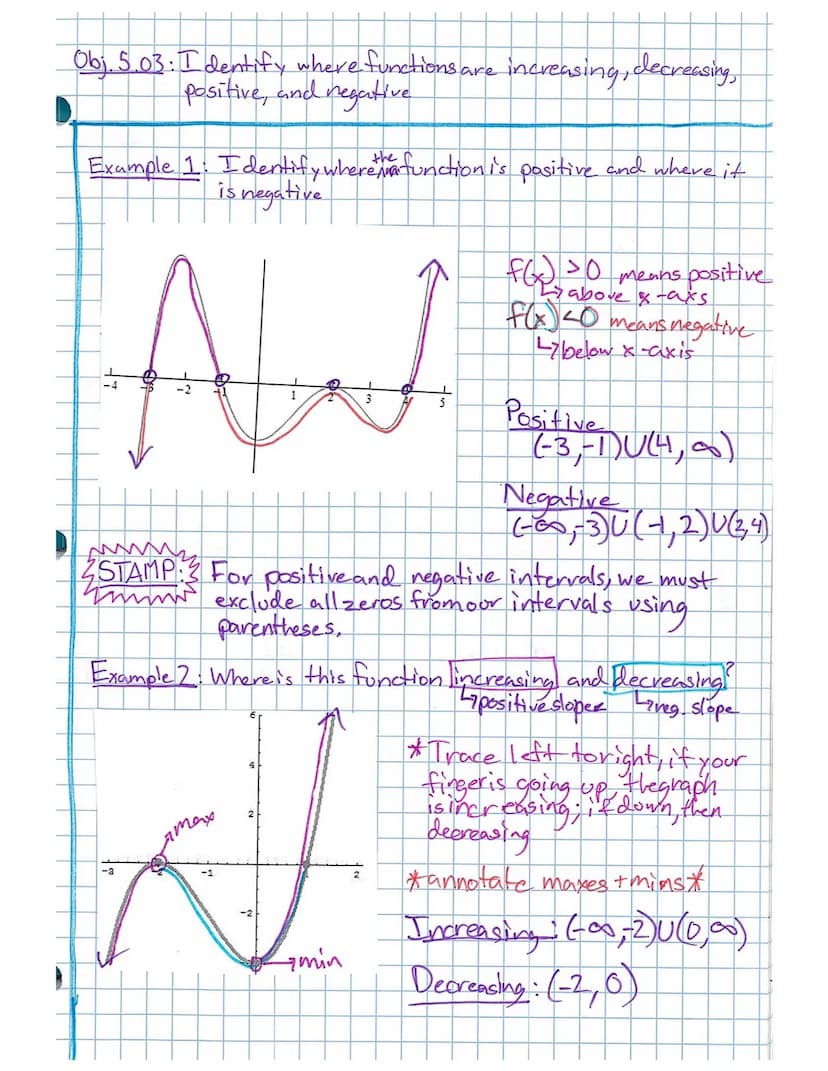 Obj. 5.03: Identify where functions are increasing, decreasing,
positive, and negative
Example 1: Identify where the function is positive and where it
is negative
f(x) >0 means positive
↳ above x-axs
f(x) <0 means negative
↳ below x-axis
-4 -3 -2 -1 1 2 3 4 5
Positive
(-3,-1)U(4,∞)
Negative
(-∞,-3)U(-1,2)U(2,4)
STAMP: For positive and negative intervals, we must
exclude all zeros from our intervals using
parentheses.
Example 2: Where is this function increasing and decreasing?
↳ positive slope ↳ neg. slope
6
4
2
-2
-3 -2 -1 2
max
min
*Trace left to right, if your
finger is going up, the graph
is increasing; if down, then
decreasing
*annotate maxes + mins*
Increasing: (-∞,-2)U(0,∞)
Decreasing: (-2,0)